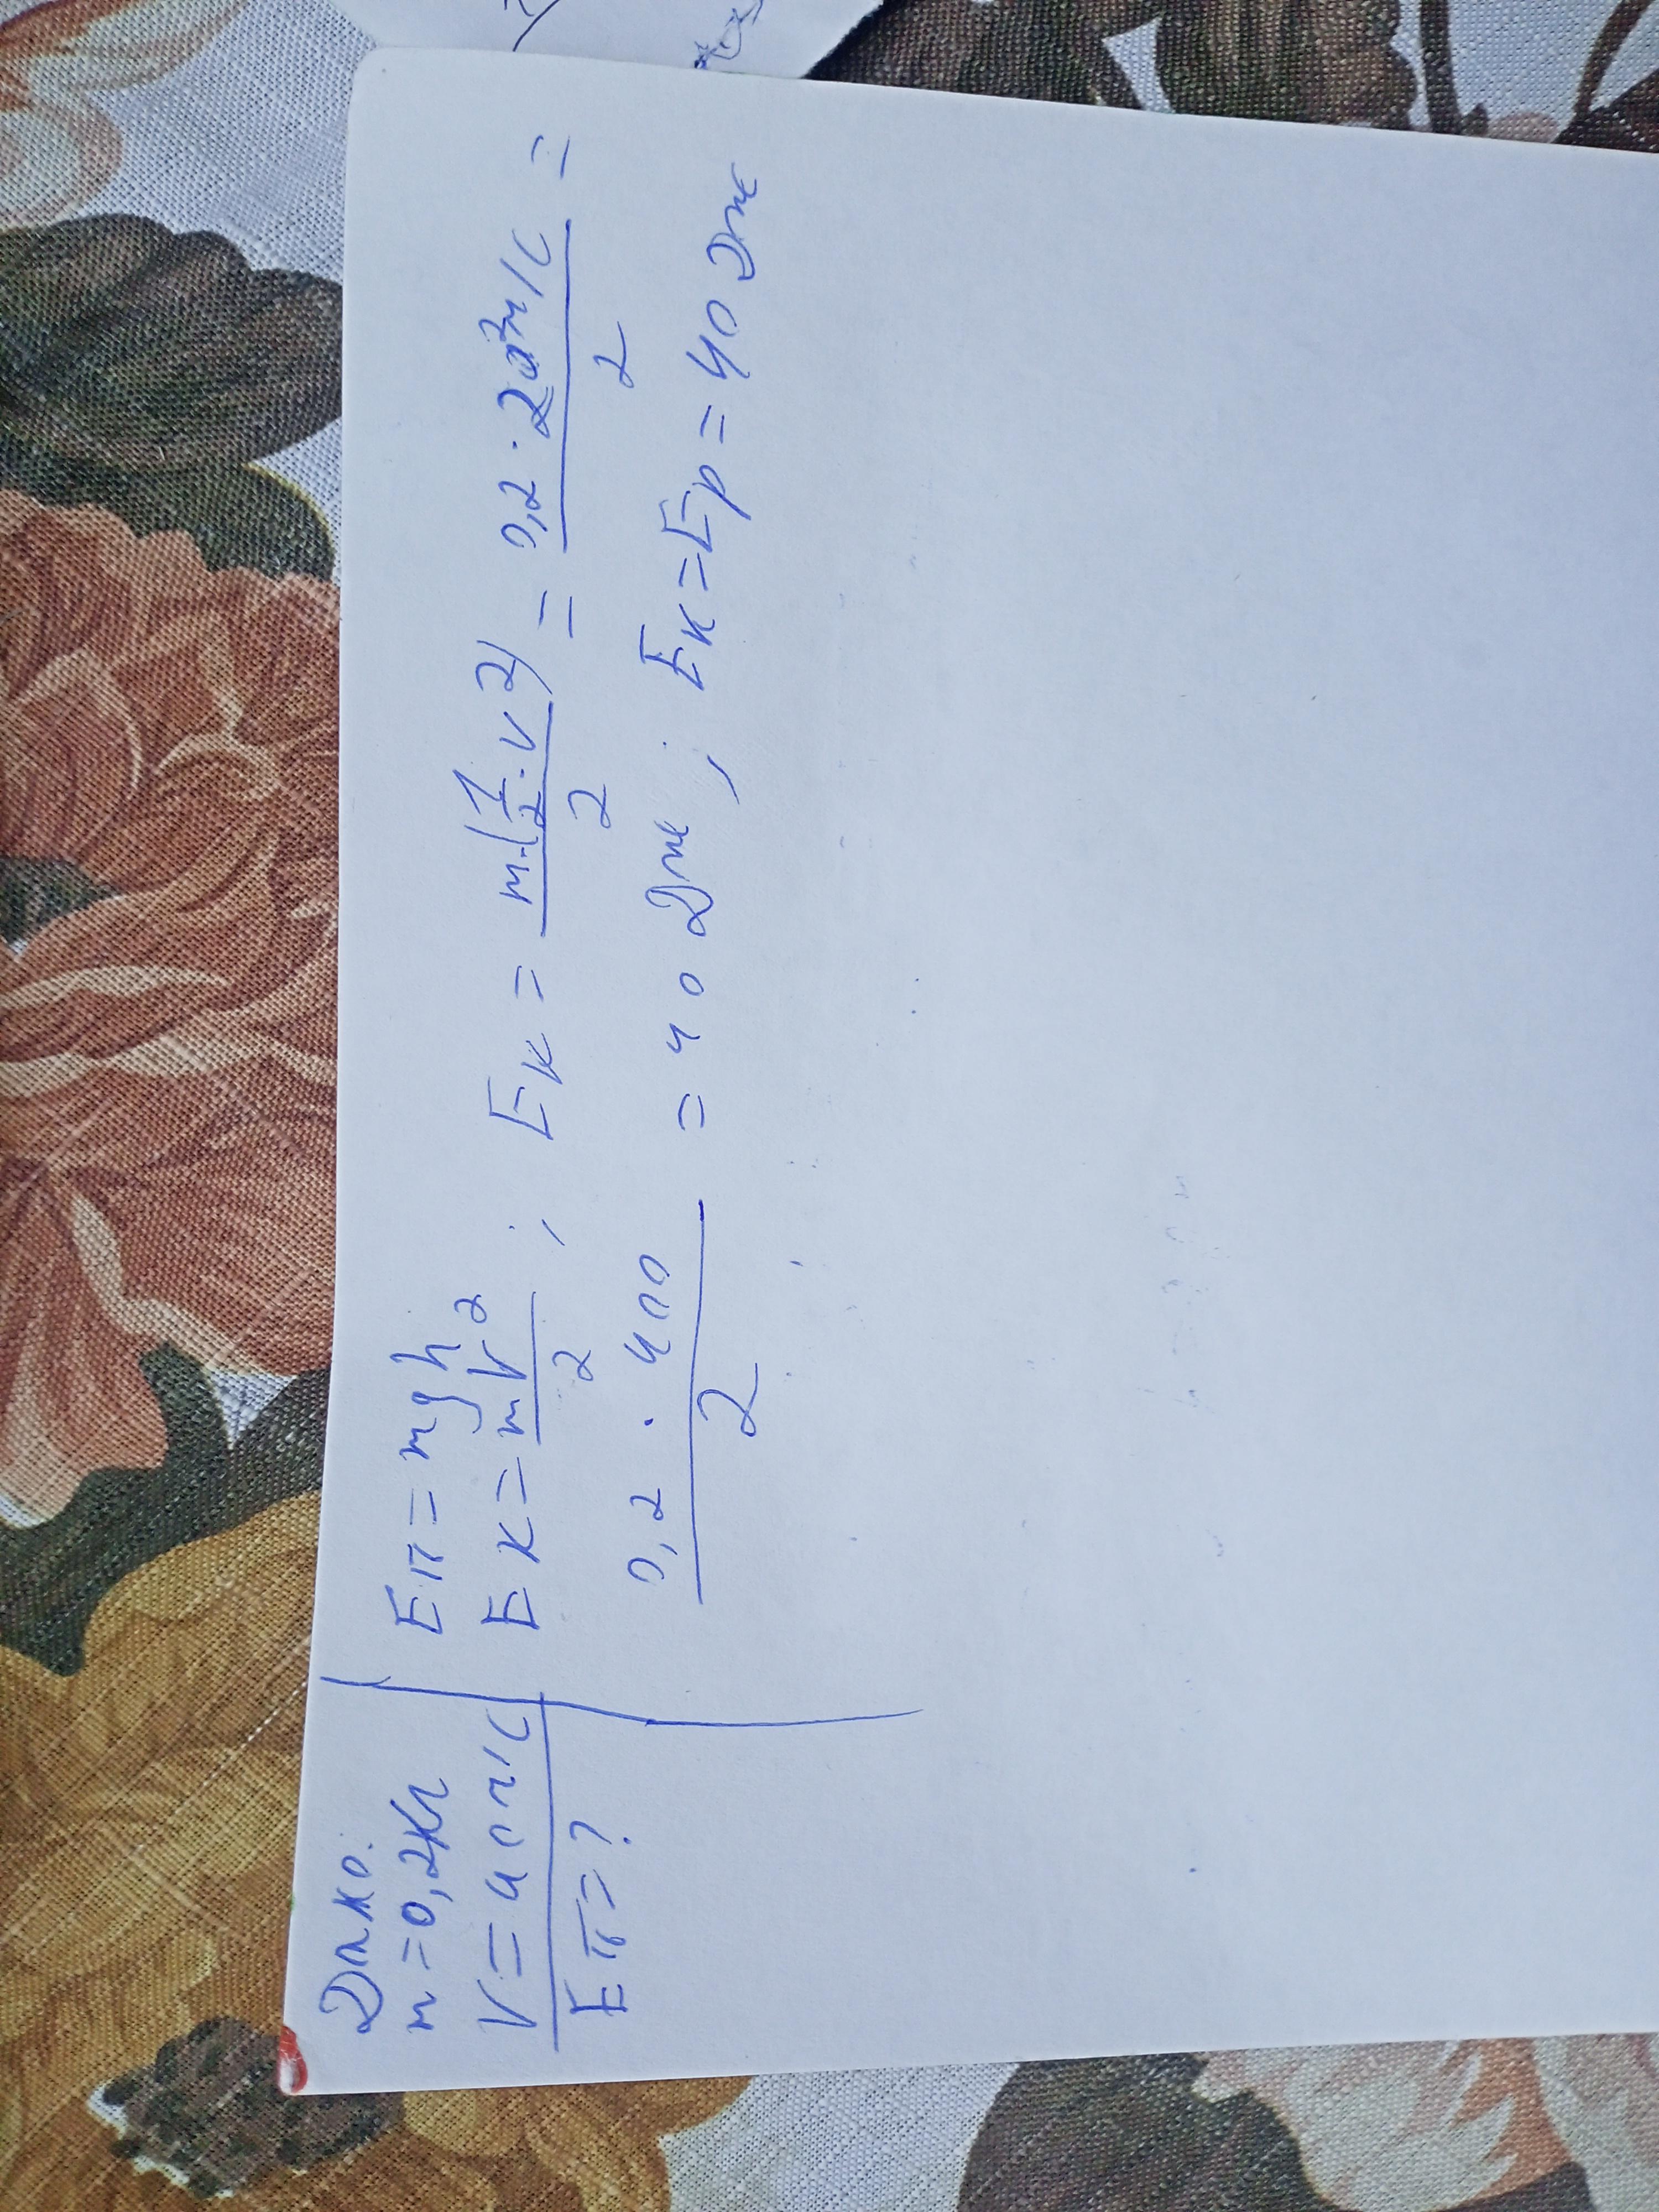 Дано:
m = 0,2 кг
V = 40 м/с
Eп = ?
Eп = mgh
Eк = mV²/2 ; Eк = m·(1/2·V2)/2 = 0,2·20² м/с / 2 =
0,2·400 / 2 = 40 Дж ; Eк = Ep = 40 Дж